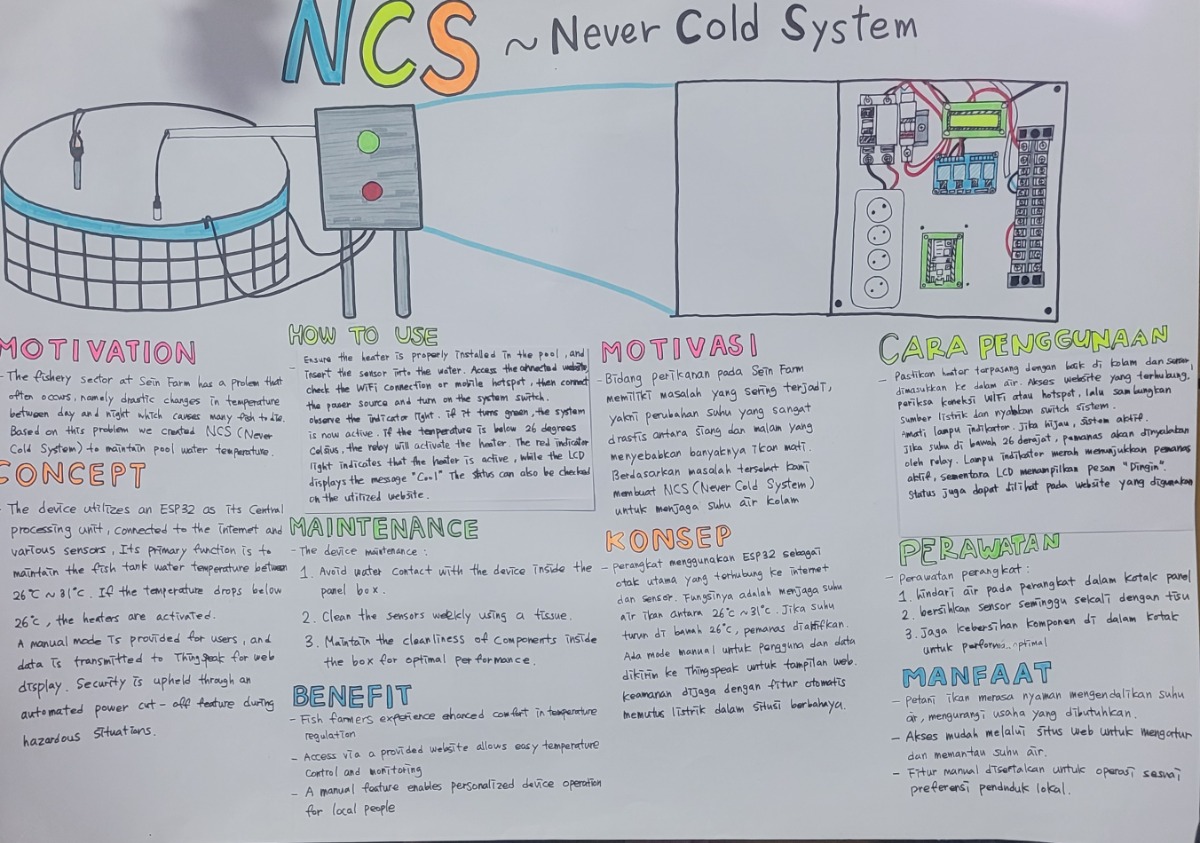 NCS ~ Never Cold System
MOTIVATION
- The fishery sector at Sein Farm has a prolem that
often occurs, namely drastic changes in temperature
between day and night which causes many fish to die.
Based on this problem we created NCS (Never
Cold System) to maintain pool water temperature.
CONCEPT
- The device utilizes an ESP32 as its Central
processing unit, connected to the internet and
various sensors, Its primary function is to
maintain the fish tank water temperature between
26°C ~ 31°C. If the temperature drops below
26°C, the heaters are activated.
A manual mode is provided for users, and
data is transmitted to ThingSpeak for web
display. Security is upheld through an
automated power cut-off feature during
hazardous situations.
HOW TO USE
- Ensure the heater is properly installed in the pool, and
insert the sensor into the water. Access the connected website,
check the WiFi connection or mobile hotspot, then connect
the power source and turn on the system switch.
- observe the indicator light. if it turns green, the system
is now active. If the temperature is below 26 degrees
Celsius, the relay will activate the heater. The red indicator
light indicates that the heater is active, while the LCD
displays the message "Cool" The status can also be checked
on the utilized website.
MAINTENANCE
- The device maintenance :
1. Avoid water contact with the device inside the
panel box.
2. Clean the sensors weekly using a tissue.
3. Maintain the cleanliness of components inside
the box for optimal performance.
BENEFIT
- Fish farmers experience enhanced comfort in temperature
regulation
- Access via a provided website allows easy temperature
control and monitoring
- A manual feature enables personalized device operation
for local people
MOTIVASI
- Bidang perikanan pada Sein Farm
memiliki masalah yang sering terjadi,
yakni perubahan suhu yang sangat
drastis antara siang dan malam yang
menyebabkan banyaknya ikan mati.
Berdasarkan masalah tersebut kami
membuat NCS (Never Cold System)
untuk menjaga suhu air kolam
KONSEP
- Perangkat menggunakan ESP32 sebagai
otak utama yang terhubung ke internet
dan sensor. Fungsinya adalah menjaga suhu
air ikan antara 26°C ~ 31°C. Jika suhu
turun di bawah 26°C, pemanas diaktifkan.
Ada mode manual untuk pengguna dan data
dikirim ke Thingspeak untuk tampilan web.
keamanan dijaga dengan fitur otomatis
memutus listrik dalam situsi berbahaya.
CARA PENGGUNAAN
- Pastikan heater terpasang dengan baik di kolam dan sensor
dimasukkan ke dalam air. Akses website yang terhubung,
periksa koneksi WiFi atau hotspot, lalu sambungkan
sumber listrik dan nyalakan switch sistem.
- amati lampu indikator. Jika hijau, sistem aktif.
Jika suhu di bawah 26 derajat, pemanas akan dinyalakan
oleh relay. Lampu indikator merah menunjukkan pemanas
aktif, sementara LCD menampilkan pesan "Dingin".
Status juga dapat dilihat pada website yang digunakan
PERAWATAN
- Perawatan perangkat :
1. hindari air pada perangkat dalam kotak panel
2. bersihkan sensor seminggu sekali dengan tisu
3. Jaga kebersihan komponen di dalam kotak
untuk performa optimal
MANFAAT
- Petani ikan merasa nyaman mengendalikan suhu
air, mengurangi usaha yang dibutuhkan.
- Akses mudah melalui situs web untuk mengatur
dan memantau suhu air.
- Fitur manual disertakan untuk operasi sesuai
preferensi penduduk lokal.